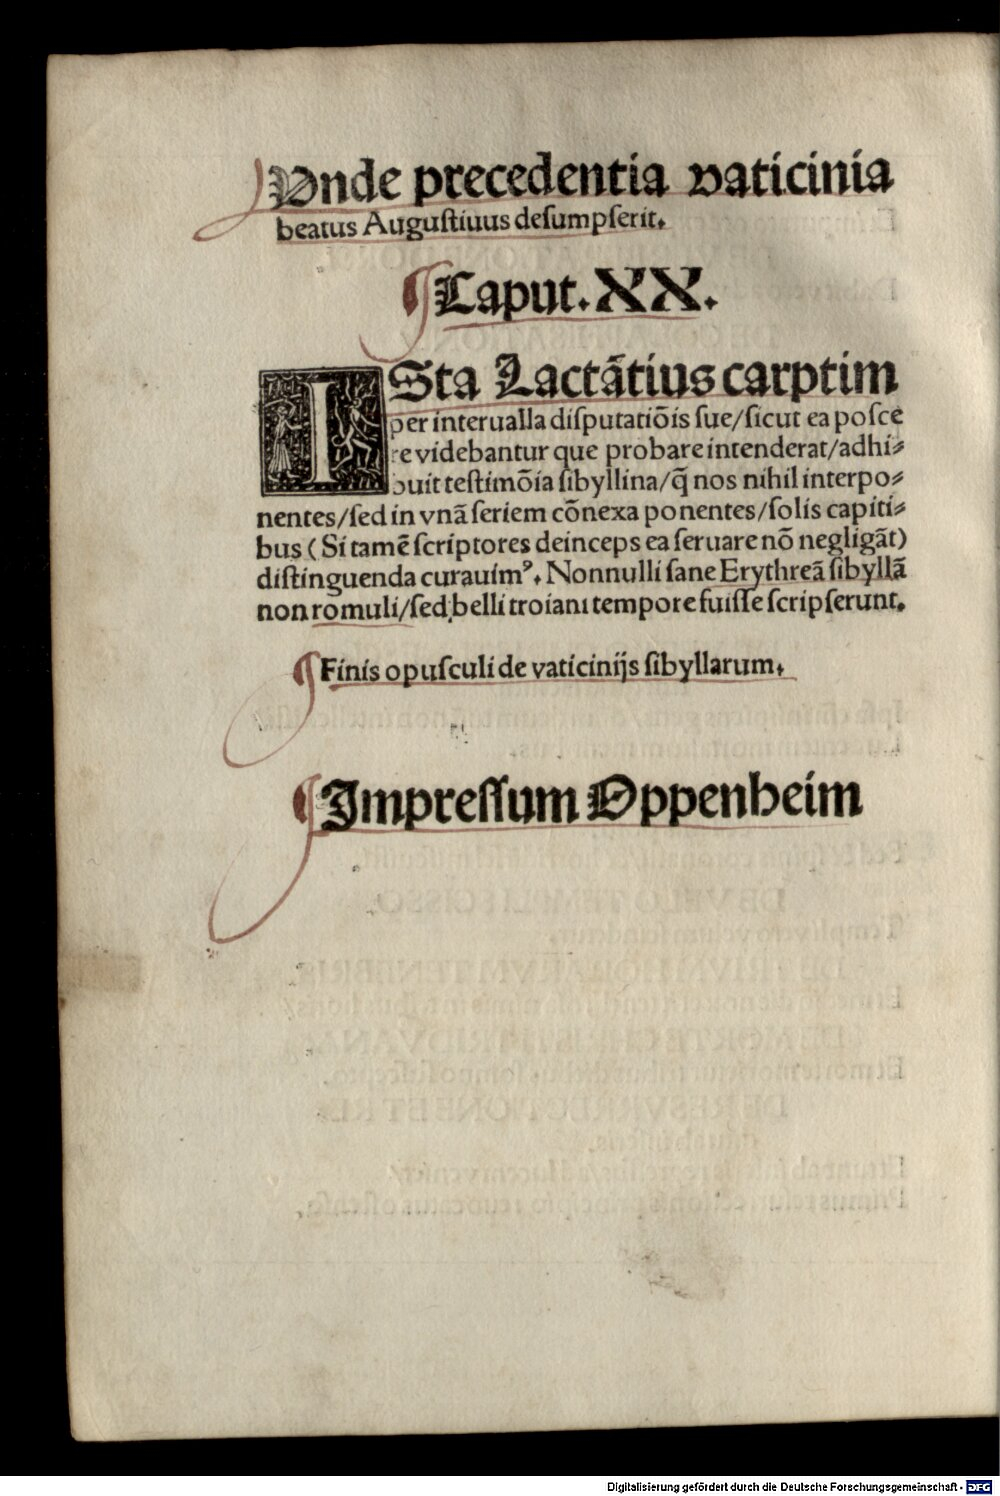 Vnde precedentia vaticinia
beatus Auguſtiuus deſumpſerit.
¶Caput.XX.
ISta Lactãtius carptim
per interualla diſputatiõis ſue/ſicut ea poſce
re videbantur que probare intenderat/adhi⸗
buit teſtimõia ſibyllina/q̃ nos nihil interpo⸗
nentes/ſed in vnã ſeriem cõnexa ponentes/ſolis capiti⸗
bus (Si tamẽ ſcriptores deinceps ea ſeruare nõ negligãt)
diſtinguenda curauimꝰ. Nonnulli ſane Erythreã ſibyllã
non romuli/ſed belli troiani tempore fuiſſe ſcripſerunt.
¶Finis opuſculi de vaticinijs ſibyllarum.
¶Impreſſum Oppenheim
Digitalisierung gefördert durch die Deutsche Forschungsgemeinschaft - DFG